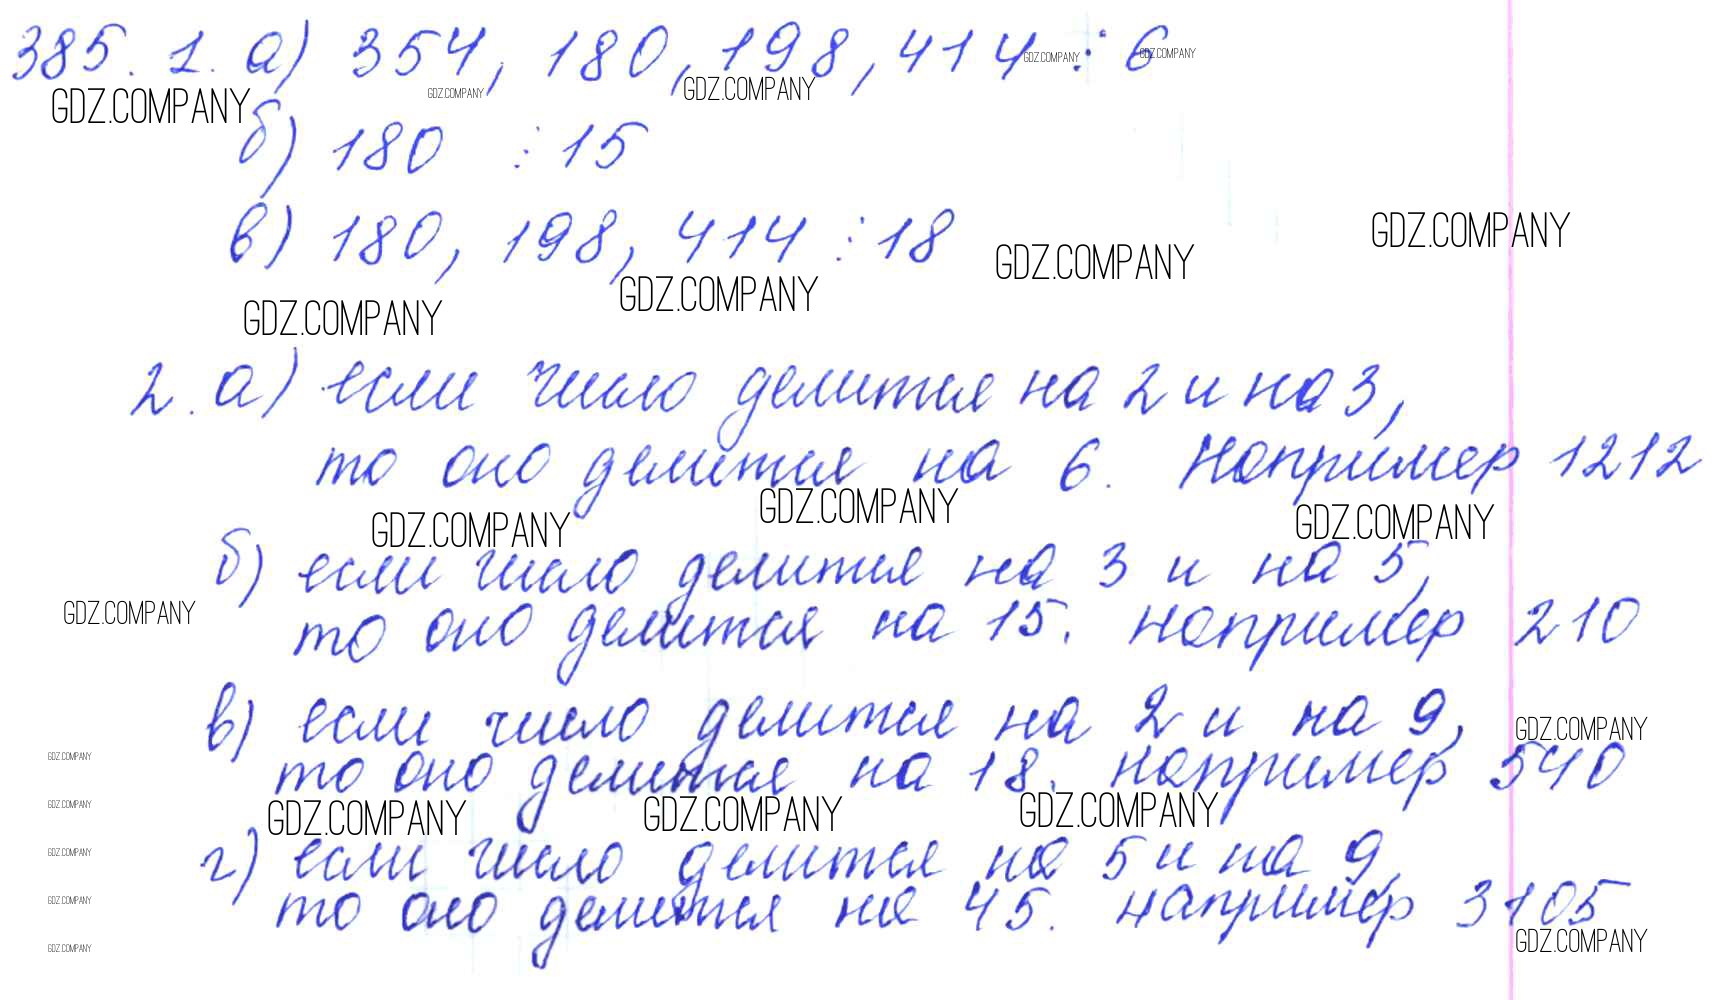 385. 1. а) 354, 180, 198, 414 ⋮ 6
GDZ.COMPANY GDZ.COMPANY GDZ.COMPANY GDZ.COMPANY GDZ.COMPANY
б) 180 ⋮ 15
в) 180, 198, 414 ⋮ 18
GDZ.COMPANY GDZ.COMPANY GDZ.COMPANY GDZ.COMPANY
2. а) если число делится на 2 и на 3,
то оно делится на 6. Например 1212
GDZ.COMPANY GDZ.COMPANY GDZ.COMPANY
б) если число делится на 3 и на 5,
GDZ.COMPANY
то оно делится на 15. например 210
в) если число делится на 2 и на 9,
GDZ.COMPANY
то оно делится на 18. например 540
GDZ.COMPANY
GDZ.COMPANY
GDZ.COMPANY GDZ.COMPANY GDZ.COMPANY
г) если число делится на 5 и на 9,
GDZ.COMPANY
то оно делится на 45. например 3105
GDZ.COMPANY
GDZ.COMPANY
GDZ.COMPANY